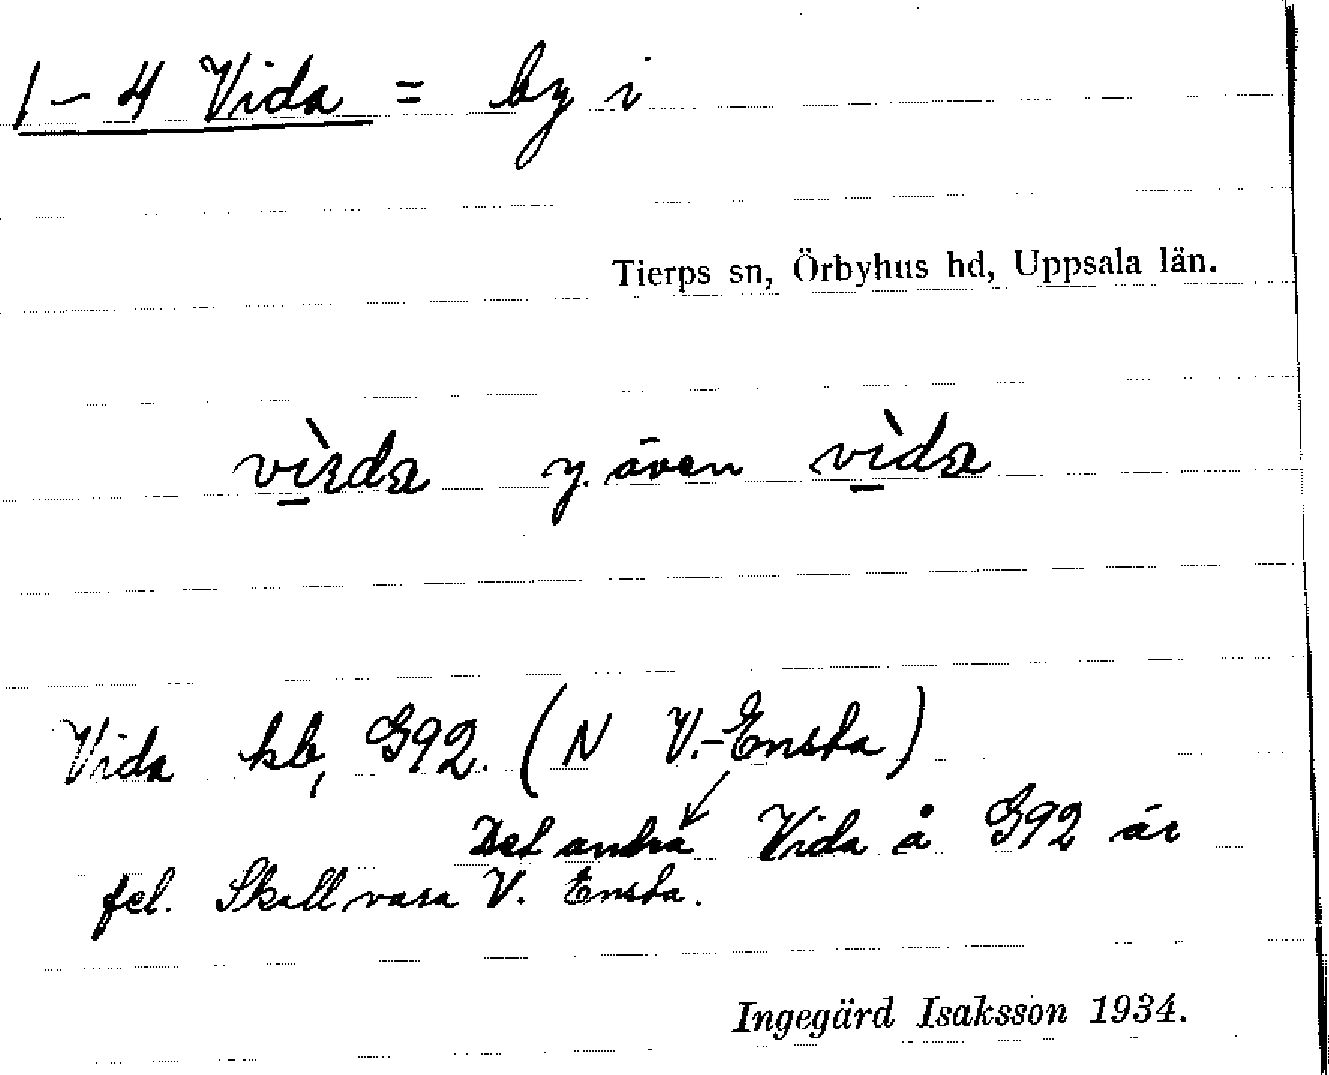 1-4 Vida = by i
Tierps sn, Örbyhus hd, Uppsala län.
vìrda y. även vìda
Vida kb, G92. (N V.-Ensta)
Det andra Vida å G92 är
fel. Skall vara V. Ensta.
Ingegärd Isaksson 1934.